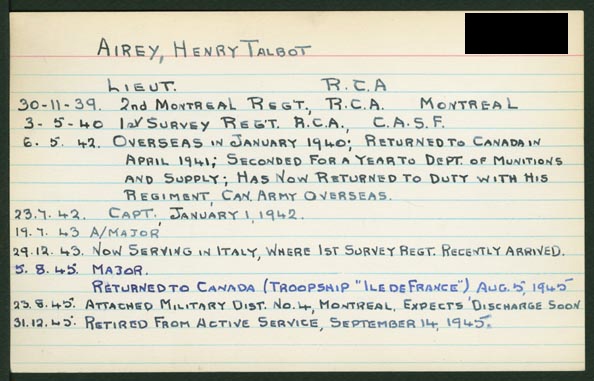 AIREY, HENRY TALBOT
LIEUT. R.C.A
30-11-39. 2nd MONTREAL REGT., R.C.A. MONTREAL
3-5-40 1st SURVEY REGT. R.C.A., C.A.S.F.
6.5.42. OVERSEAS IN JANUARY 1940; RETURNED TO CANADA IN
APRIL 1941; SECONDED FOR A YEAR TO DEPT. OF MUNITIONS
AND SUPPLY; HAS NOW RETURNED TO DUTY WITH HIS
REGIMENT, CAN. ARMY OVERSEAS.
23.7.42. CAPT., JANUARY 1, 1942.
19.7.43 A/MAJOR
29.12.43. NOW SERVING IN ITALY, WHERE 1ST SURVEY REGT. RECENTLY ARRIVED.
5.8.45. MAJOR.
RETURNED TO CANADA (TROOPSHIP "ILE DE FRANCE") AUG. 5, 1945
23.8.45. ATTACHED MILITARY DIST. NO. 4, MONTREAL, EXPECTS DISCHARGE SOON
31.12.45. RETIRED FROM ACTIVE SERVICE, SEPTEMBER 14, 1945.